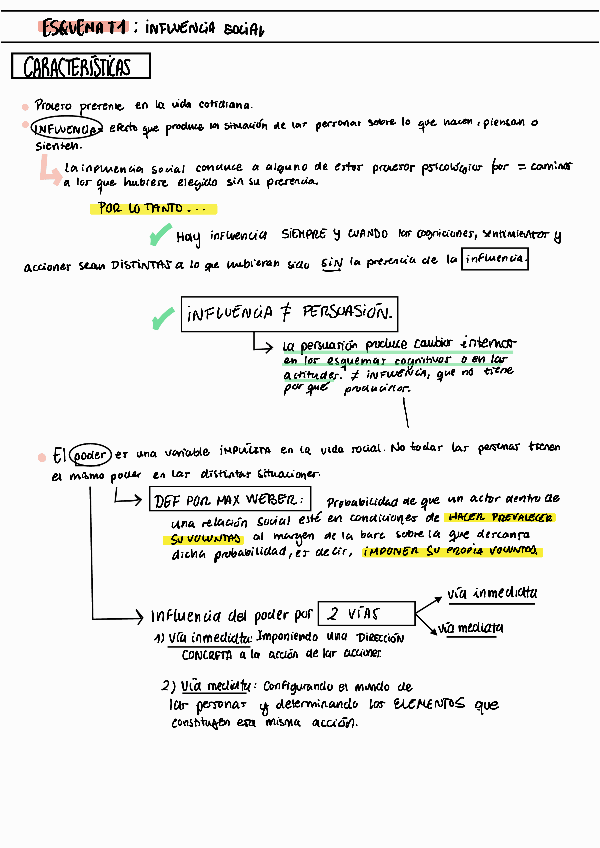 ESQUEMA T1: INFLUENCIA SOCIAL
CARACTERÍSTICAS
Proceso presente en la vida cotidiana.
INFLUENCIA: efecto que produce la situación de las personas sobre lo que hacen, piensan o
sienten.
La influencia social conduce a alguno de estos procesos psicológicos por ≠ caminos
a los que hubiere elegido sin su presencia.
POR LO TANTO...
Hay influencia SIEMPRE Y CUANDO las cogniciones, sentimientos y
acciones sean DISTINTAS a lo que hubieran sido SIN la presencia de la influencia.
INFLUENCIA ≠ PERSUASIÓN.
La persuasión produce cambios internos
en los esquemas cognitivos o en las
actitudes. ≠ INFLUENCIA, que no tiene
por qué producirlos.
El poder es una variable IMPLÍCITA en la vida social. No todas las personas tienen
el mismo poder en las distintas situaciones.
DEF POR MAX WEBER: Probabilidad de que un actor dentro de
una relación social esté en condiciones de HACER PREVALECER
SU VOLUNTAD al margen de la base sobre la que descansa
dicha probabilidad, es decir, IMPONER SU PROPIA VOLUNTAD.
Influencia del poder por 2 VÍAS
vía inmediata
vía mediata
1) Vía inmediata: Imponiendo una DIRECCIÓN
CONCRETA a la acción de las acciones
2) Vía mediata: Configurando el mundo de
las personas y determinando los ELEMENTOS que
constituyen esa misma acción.